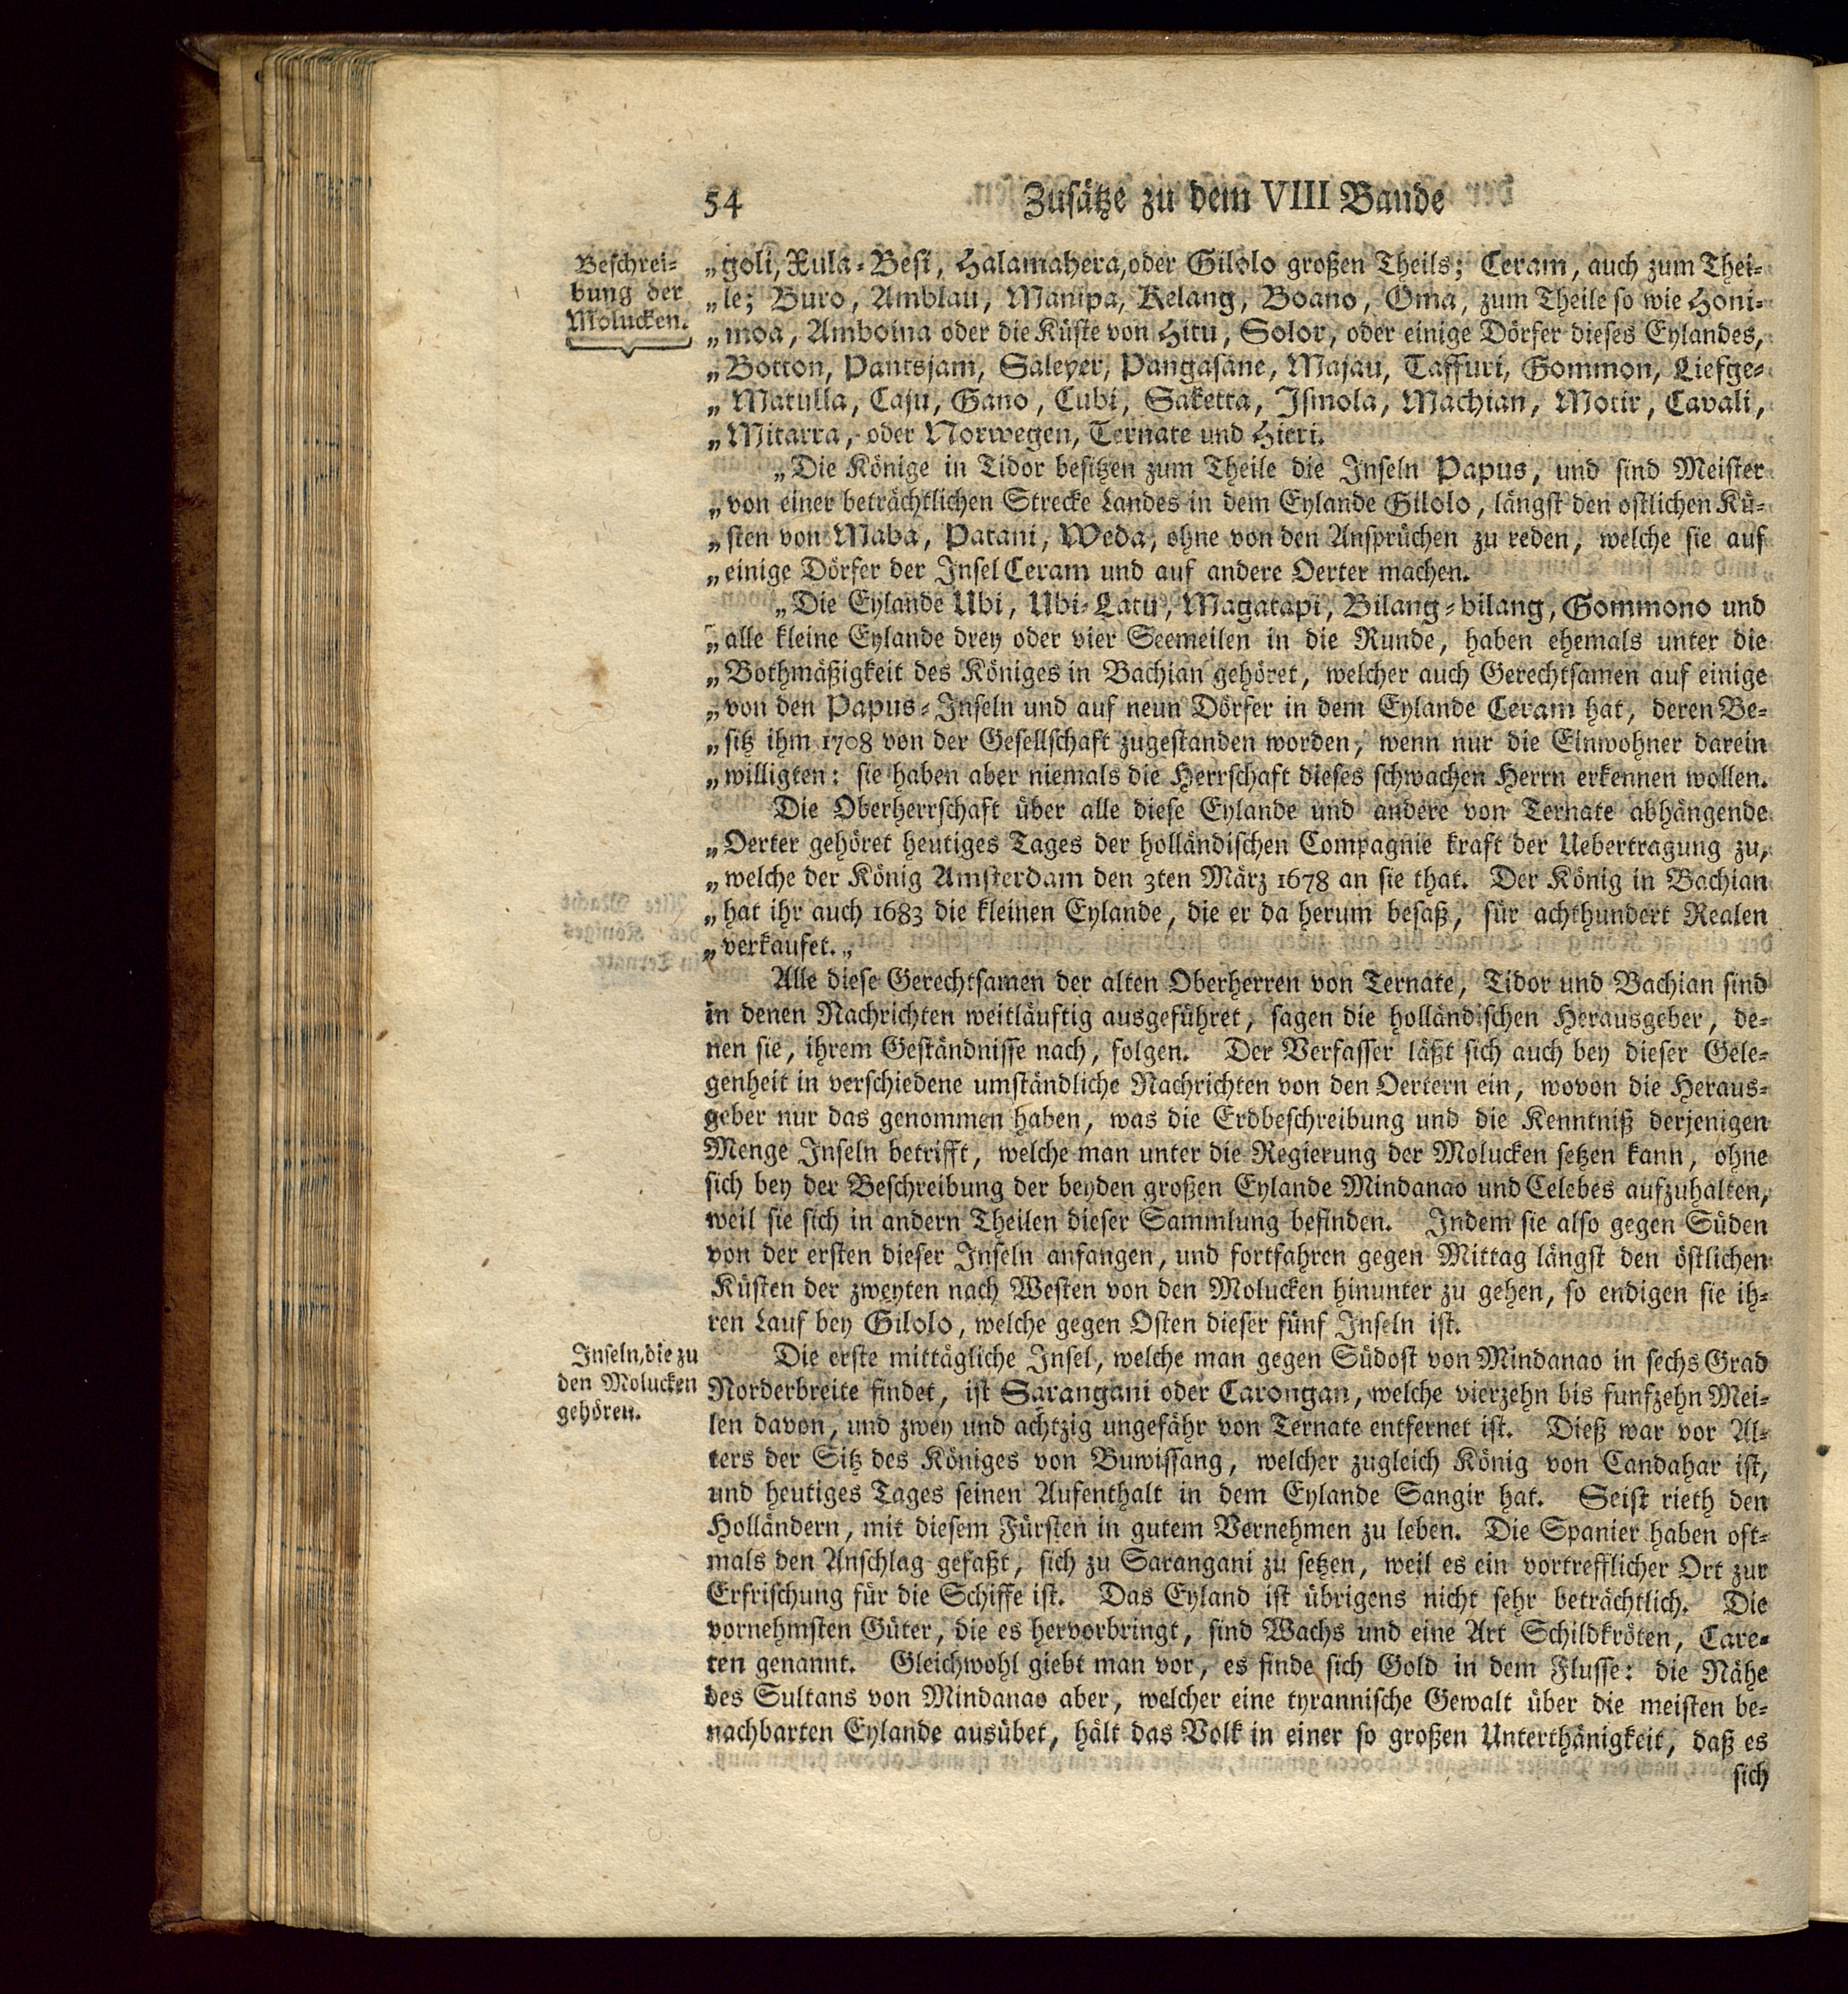 54
Zusätze zu dem VIII Bande
Beschrei-
bung der
Molucken.
„goli, Xula-Besi, Halamahera, oder Gilolo großen Theils; Ceram, auch zum Thei-
„le; Buro, Amblau, Manipa, Kelang, Boano, Oma, zum Theile so wie Honi-
„moa, Amboina oder die Küste von Hitu, Solor, oder einige Dörfer dieses Eylandes,
„Botton, Pantsjam, Saleyer, Pangasane, Majau, Taffuri, Gommon, Liefge-
„Matulla, Caju, Gano, Cubi, Saketta, Ismola, Machian, Motir, Cavali,
„Mitarra, oder Norwegen, Ternate und Hieri.
„Die Könige in Tidor besitzen zum Theile die Inseln Papus, und sind Meister
„von einer beträchtlichen Strecke Landes in dem Eylande Gilolo, längst den ostlichen Kü-
„sten von Maba, Patani, Weda, ohne von den Ansprüchen zu reden, welche sie auf
„einige Dörfer der Insel Ceram und auf andere Oerter machen.
„Die Eylande Ubi, Ubi-Latu, Magatapi, Bilang-bilang, Gommono und
„alle kleine Eylande drey oder vier Seemeilen in die Runde, haben ehemals unter die
„Bothmäßigkeit des Königes in Bachian gehöret, welcher auch Gerechtsamen auf einige
„von den Papus-Inseln und auf neun Dörfer in dem Eylande Ceram hat, deren Be-
„sitz ihm 1708 von der Gesellschaft zugestanden worden, wenn nur die Einwohner darein
„willigten: sie haben aber niemals die Herrschaft dieses schwachen Herrn erkennen wollen.
Die Oberherrschaft über alle diese Eylande und andere von Ternate abhängende
„Oerter gehöret heutiges Tages der holländischen Compagnie kraft der Uebertragung zu,
„welche der König Amsterdam den 3ten März 1678 an sie that. Der König in Bachian
„hat ihr auch 1683 die kleinen Eylande, die er da herum besaß, für achthundert Realen
„verkaufet.„
Alle diese Gerechtsamen der alten Oberherren von Ternate, Tidor und Bachian sind
in denen Nachrichten weitläuftig ausgeführet, sagen die holländischen Herausgeber, de-
nen sie, ihrem Geständnisse nach, folgen. Der Verfasser läßt sich auch bey dieser Gele-
genheit in verschiedene umständliche Nachrichten von den Oertern ein, wovon die Heraus-
geber nur das genommen haben, was die Erdbeschreibung und die Kenntniß derjenigen
Menge Inseln betrifft, welche man unter die Regierung der Molucken setzen kann, ohne
sich bey der Beschreibung der beyden großen Eylande Mindanao und Celebes aufzuhalten,
weil sie sich in andern Theilen dieser Sammlung befinden. Indem sie also gegen Süden
von der ersten dieser Inseln anfangen, und fortfahren gegen Mittag längst den östlichen
Küsten der zweyten nach Westen von den Molucken hinunter zu gehen, so endigen sie ih-
ren Lauf bey Gilolo, welche gegen Osten dieser fünf Inseln ist.
Inseln, die zu
den Molucken
gehören.
Die erste mittägliche Insel, welche man gegen Südost von Mindanao in sechs Grad
Norderbreite findet, ist Sarangani oder Carongan, welche vierzehn bis funfzehn Mei-
len davon, und zwey und achtzig ungefähr von Ternate entfernet ist. Dieß war vor Al-
ters der Sitz des Königes von Buwissang, welcher zugleich König von Candahar ist,
und heutiges Tages seinen Aufenthalt in dem Eylande Sangir hat. Seist rieth den
Holländern, mit diesem Fürsten in gutem Vernehmen zu leben. Die Spanier haben oft-
mals den Anschlag gefaßt, sich zu Sarangani zu setzen, weil es ein vortrefflicher Ort zur
Erfrischung für die Schiffe ist. Das Eyland ist übrigens nicht sehr beträchtlich. Die
vornehmsten Güter, die es hervorbringt, sind Wachs und eine Art Schildkröten, Care-
ten genannt. Gleichwohl giebt man vor, es finde sich Gold in dem Flusse: die Nähe
des Sultans von Mindanao aber, welcher eine tyrannische Gewalt über die meisten be-
nachbarten Eylande ausübet, hält das Volk in einer so großen Unterthänigkeit, daß es
sich